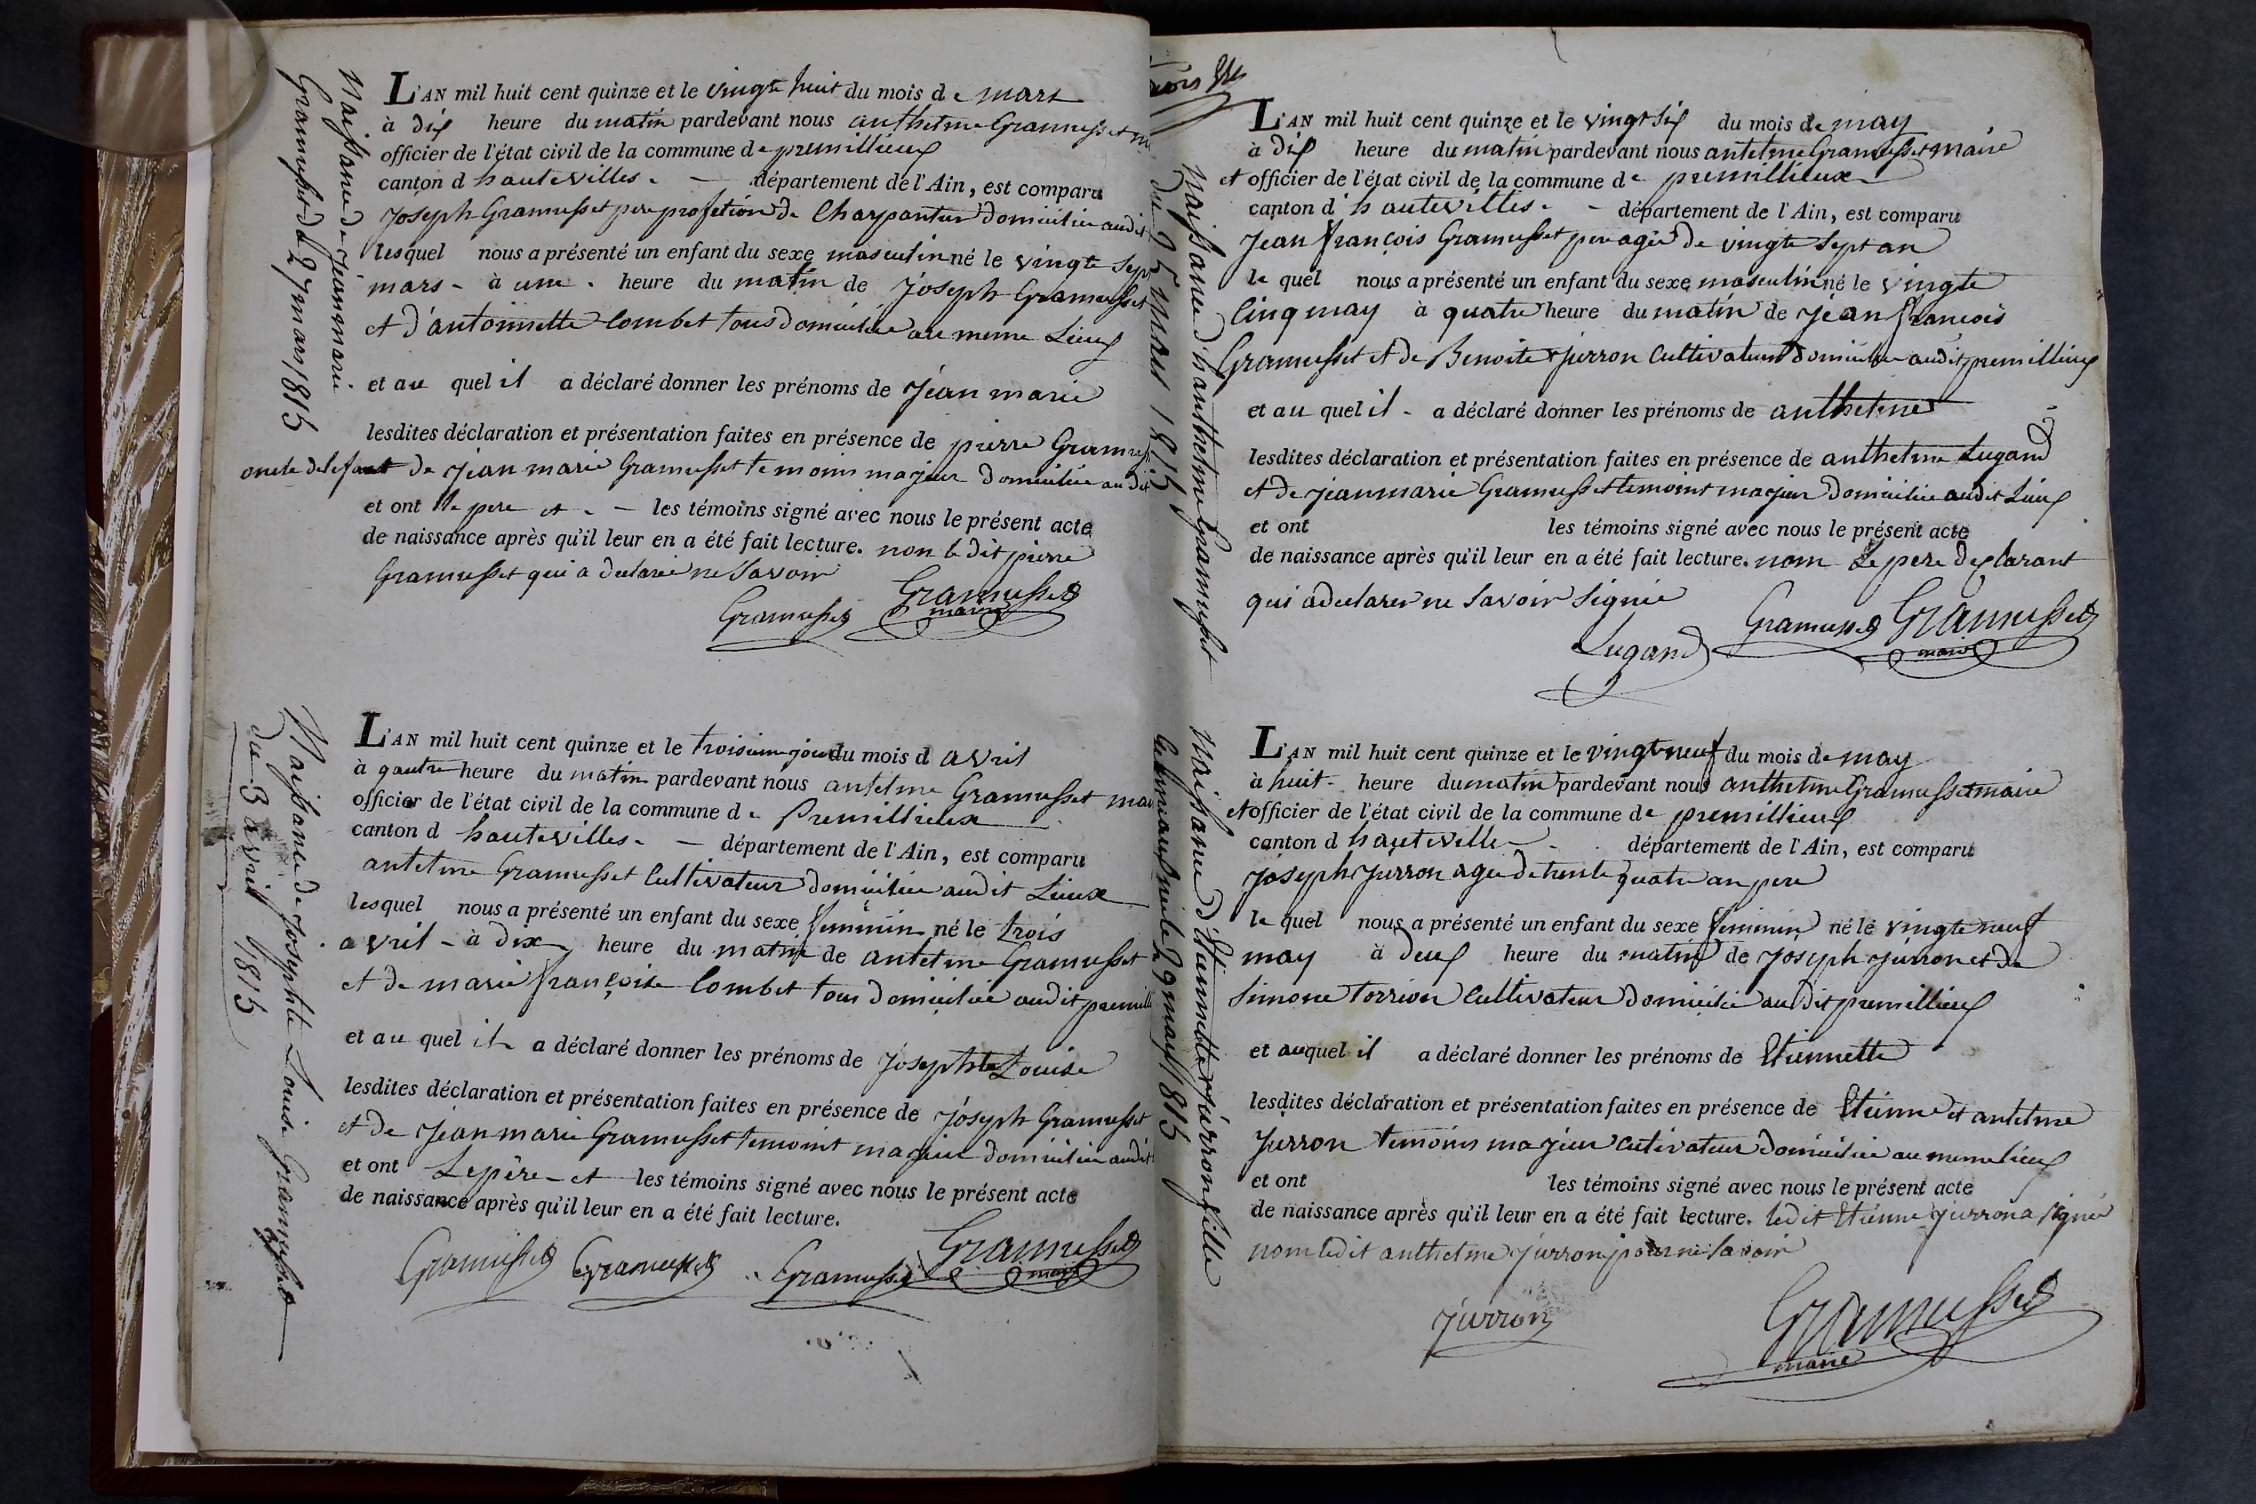 Naissance de jeanmarie
Gramusset du 27 mars 1815
L'AN mil huit cent quinze et le vingte huit du mois de mars
à dix heure du matin pardevant nous anthelme Gramusset
officier de l'état civil de la commune de premillieux
canton d hautevilles. — département de l'Ain, est comparu
joseph Gramusset pere profetion de Charpantier domicilié audit
lesquel nous a présenté un enfant du sexe masculin né le vingte sept
mars - à une . heure du matin de joseph Gramusset
et d'antoinette Combet tous domicilié au meme Lieux
et au quel il a déclaré donner les prénoms de jean marie
lesdites déclaration et présentation faites en présence de pierre Gramusset
oncle de lefant de jean marie Gramusset temoins majeur domicilié au dit
et ont le pere et - — les témoins signé avec nous le présent acte
de naissance après qu'il leur en a été fait lecture. non le dit pierre
Gramusset qui a declaré ne savoir
Gramusset Gramusset
maire
Naissance de josephte Louise Gramusset
du 3 avril 1815
L'AN mil huit cent quinze et le troisieme jour du mois d avril
à quatre heure du matin pardevant nous antelme Gramusset
officier de l'état civil de la commune de Premillieux
canton d hautevilles. — département de l'Ain, est comparu
antelme Gramusset Cultivateur domicilié audit Lieux
lesquel nous a présenté un enfant du sexe feminin né le trois
avril - à dix heure du matin de antelme Gramusset
et de marie françoise Combet tous domicilié audit
et au quel il a déclaré donner les prénoms de josephte Louise
lesdites déclaration et présentation faites en présence de joseph Gramusset
et de jean marie Gramusset temoint majeur domicilié audit
et ont Le père - et les témoins signé avec nous le présent acte
de naissance après qu'il leur en a été fait lecture.
Gramusset Gramusset Gramusset Gramusset
maire
Naissance d'anthelme Gramusset
L'AN mil huit cent quinze et le vingt six du mois de may
à dix heure du matin pardevant nous antelme Gramusset maire
et officier de l'état civil de la commune de premillieux
canton d' hautevilles. - département de l'Ain, est comparu
jean françois Gramusset pere agée de vingte sept an
le quel nous a présenté un enfant du sexe masculin né le vingte
Cinq may à quatre heure du matin de jean francois
Gramusset et de Benoite jurron Cultivateur domicilié audit premillieux
et au quel il - a déclaré donner les prénoms de anthelme
lesdites déclaration et présentation faites en présence de anthelme Lugand
et de jeanmarie Gramusset temoint majeur domicilié audit Lieux
et ont les témoins signé avec nous le présent acte
de naissance après qu'il leur en a été fait lecture. nom Le pere declarant
qui a declarer ne savoir signée
Lugand Gramusset Gramusset
maire
Naissance d'Etiennette jurron fille
L'AN mil huit cent quinze et le vingt neuf du mois de may
à huit - heure du matin pardevant nous anthelme Gramusset maire
et officier de l'état civil de la commune de premillieux
canton d hauteville - . département de l'Ain, est comparu
joseph jurron agée de trente quatre an pere
le quel nous a présenté un enfant du sexe feminin né le vingte neuf
may à deux heure du matin de joseph jurron et de
Simone torrion Cultivateur domicilié au dit premillieux
et auquel il a déclaré donner les prénoms de Etiennette
lesdites déclaration et présentation faites en présence de Etienne et antelme
jurron temoins majeur cutivateur domicilié au meme lieux
et ont les témoins signé avec nous le présent acte
de naissance après qu'il leur en a été fait lecture. ledit Etienne jurron a signée
nom ledit anthelme jurron pour ne savoir
jurron Gramusset
maire